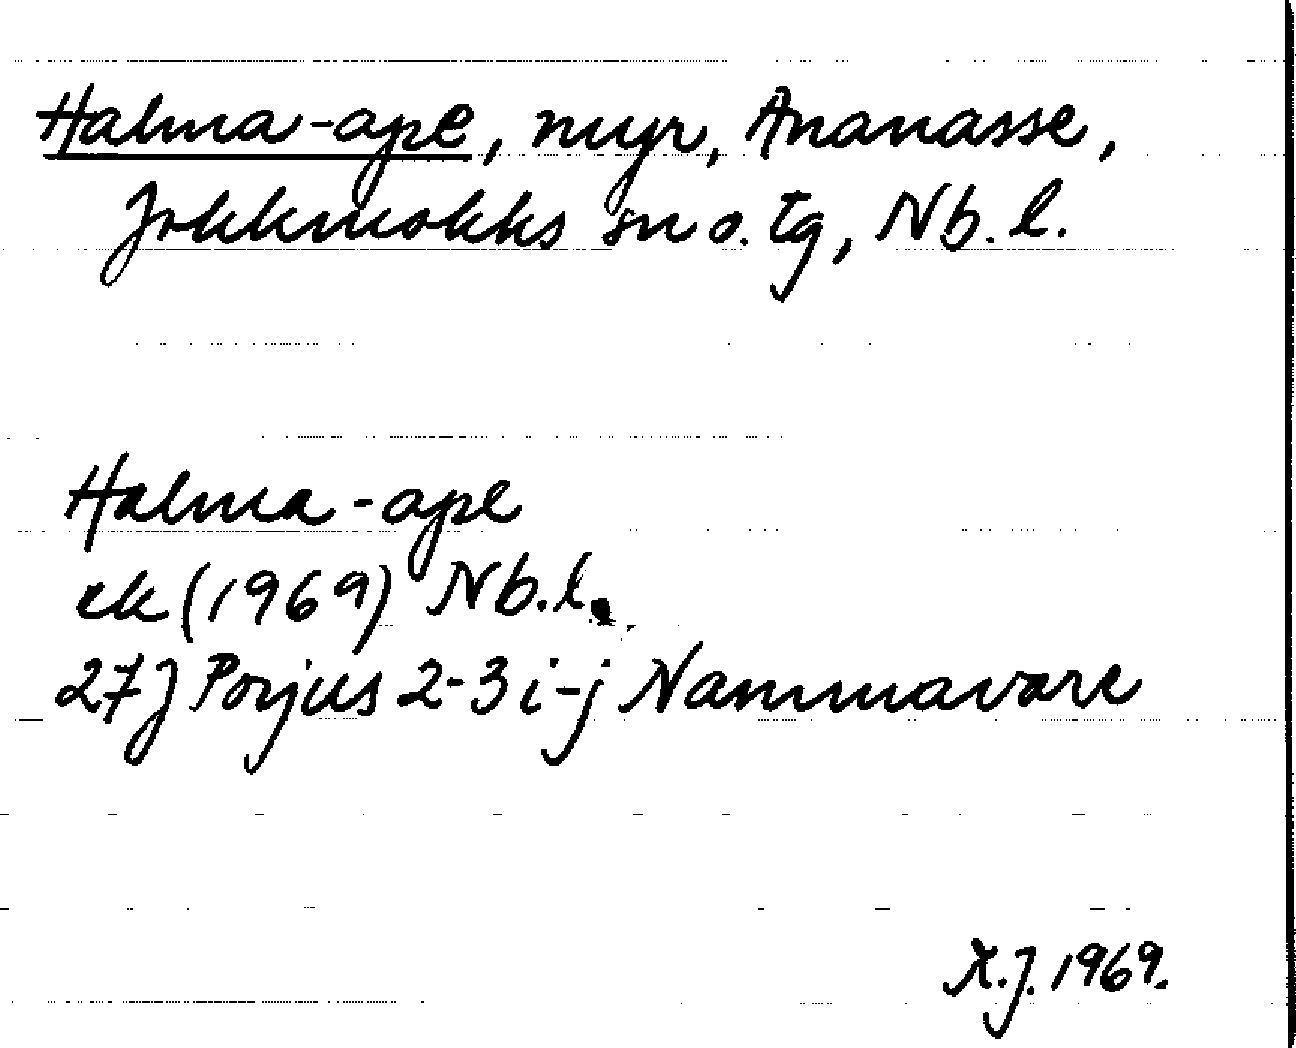 Halma-ape, myr, Ananasse,
Jokkmokks sn o. tg, Nb. l.
Halma-ape
ek (1969) Nb. l.
27J Porjus 2-3 i-j Nammavare
K.J. 1969.